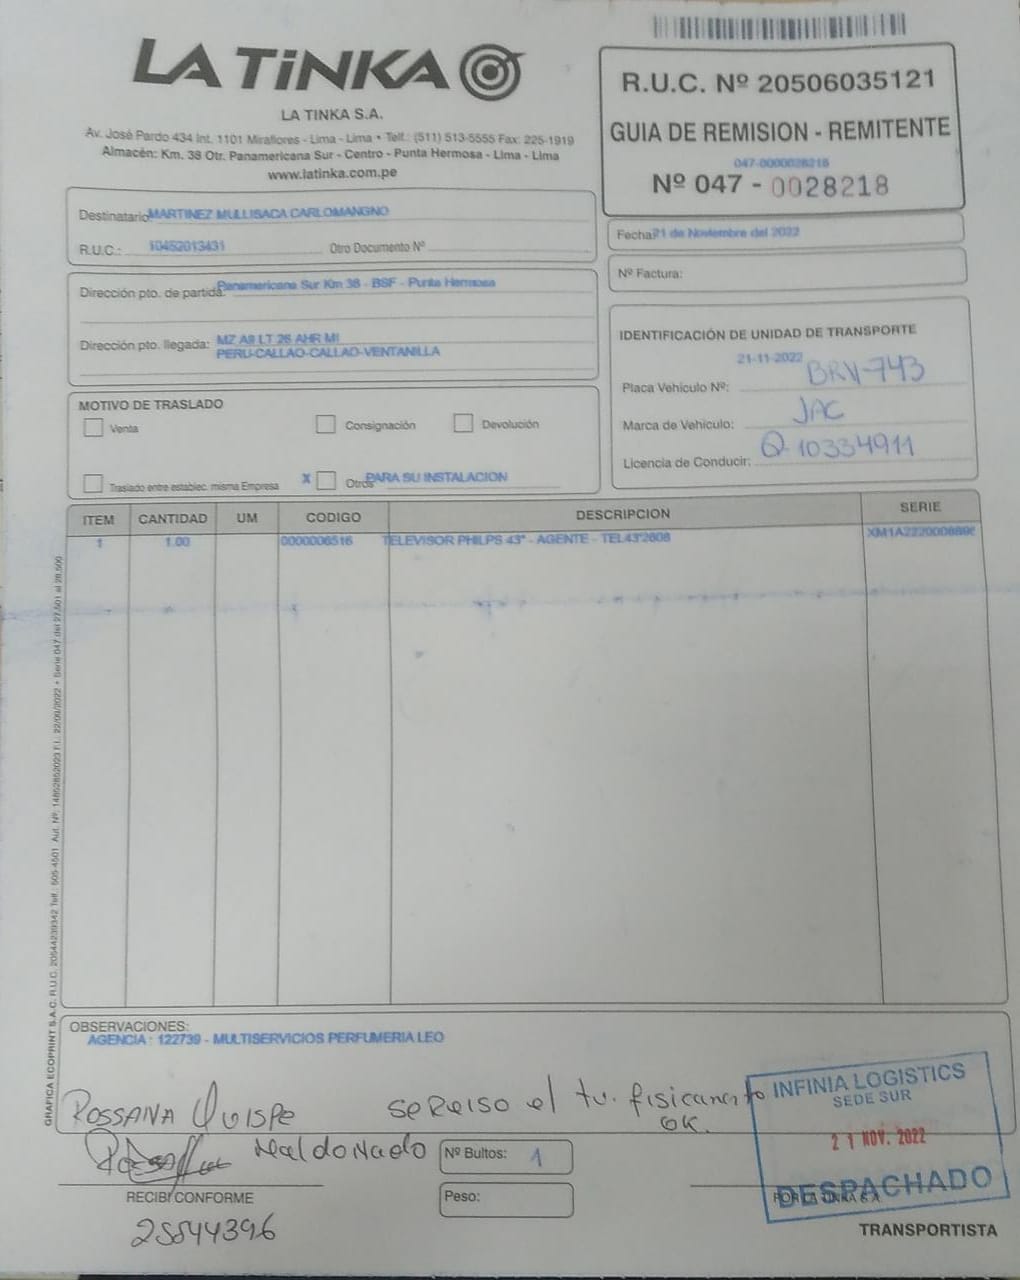 LA TiNKA
LA TINKA S.A.
Av. José Pardo 434 Int. 1101 Miraflores - Lima - Lima • Telf.: (511) 513-5555 Fax: 225-1919
Almacén: Km. 38 Otr. Panamericana Sur - Centro - Punta Hermosa - Lima - Lima
www.latinka.com.pe
R.U.C. Nº 20506035121
GUIA DE REMISION - REMITENTE
047-0000028218
Nº 047 - 0028218
Destinatario MARTINEZ MULLISACA CARLOMANGNO
R.U.C.: 10452013431 Otro Documento Nº
Fecha 21 de Noviembre del 2022
Nº Factura:
Dirección pto. de partida: Panamericana Sur Km 38 - BSF - Punta Hermosa
Dirección pto. llegada: MZ A9 LT 26 AHR MI
PERU-CALLAO-CALLAO-VENTANILLA
IDENTIFICACIÓN DE UNIDAD DE TRANSPORTE
21-11-2022
Placa Vehículo Nº: BRV-743
Marca de Vehículo: JAC
Licencia de Conducir: Q-10334911
MOTIVO DE TRASLADO
Venta Consignación Devolución
Traslado entre establec. misma Empresa X Otros PARA SU INSTALACION
ITEM CANTIDAD UM CODIGO DESCRIPCION SERIE
1 1.00 0000006516 TELEVISOR PHILPS 43" - AGENTE - TEL43"2608
GRAFICA ECOPRINT S.A.C. R.U.C. 20544239342 Telf.: 505-4501 Aut. Nº: 14862862023 F.I.: 22/09/2022 • Serie 047 del 27,501 al 28,500
OBSERVACIONES:
AGENCIA : 122739 - MULTISERVICIOS PERFUMERIA LEO
Rossana Quispe
Maldonado
el tv. fisicamento
OK.
Nº Bultos: 1
Peso:
RECIBI CONFORME
25544396
INFINIA LOGISTICS
SEDE SUR
21 NOV. 2022
DESPACHADO
POR LA TINKA S.A.
TRANSPORTISTA